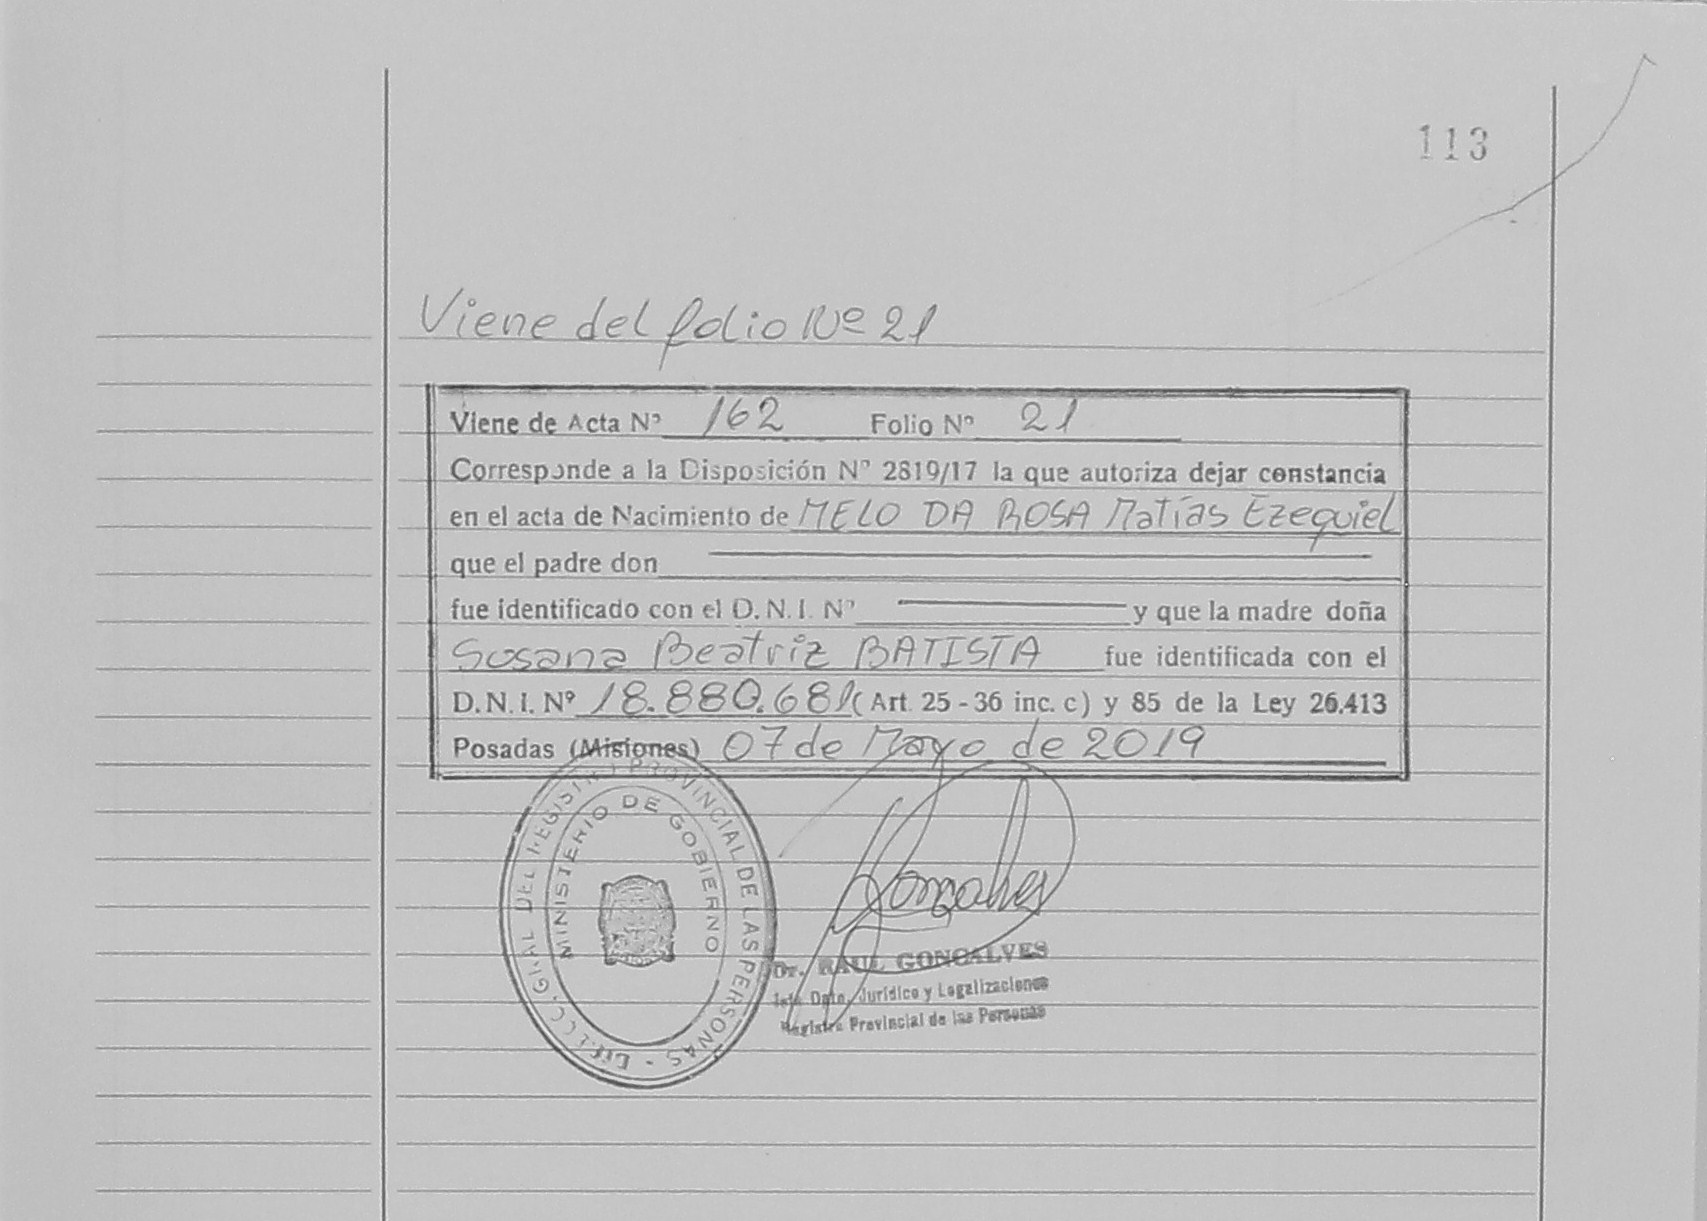 113
Viene del folio Nº 21
Viene de Acta Nº 162 Folio Nº 21
Corresponde a la Disposición Nº 2819/17 la que autoriza dejar constancia
en el acta de Nacimiento de MELO DA ROSA Matías Ezequiel
que el padre don
fue identificado con el D.N.I. Nº y que la madre doña
Susana Beatriz BATISTA fue identificada con el
D.N.I. Nº 18.880.681 (Art. 25 - 36 inc. c) y 85 de la Ley 26.413
Posadas (Misiones) 07 de Mayo de 2019
GRAL DEL REGISTRO PROVINCIAL DE LAS PERSONAS
MINISTERIO DE GOBIERNO
Goncalves
Dr. RAUL GONCALVES
Dpto. Jurídico y Legalizaciones
Registro Provincial de las Personas